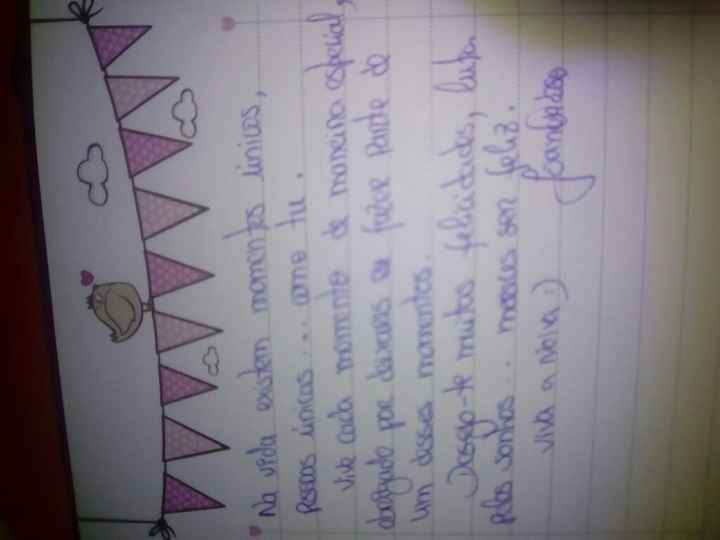 Na vida existem momentos únicos,
pessoas únicas... como tu.
Vive cada momento de maneira especial,
obrigado por deixares eu fazer parte de
um desses momentos.
Desejo-te muitas felicidades, luta
pelos sonhos... mereces ser feliz.
viva a noiva :)